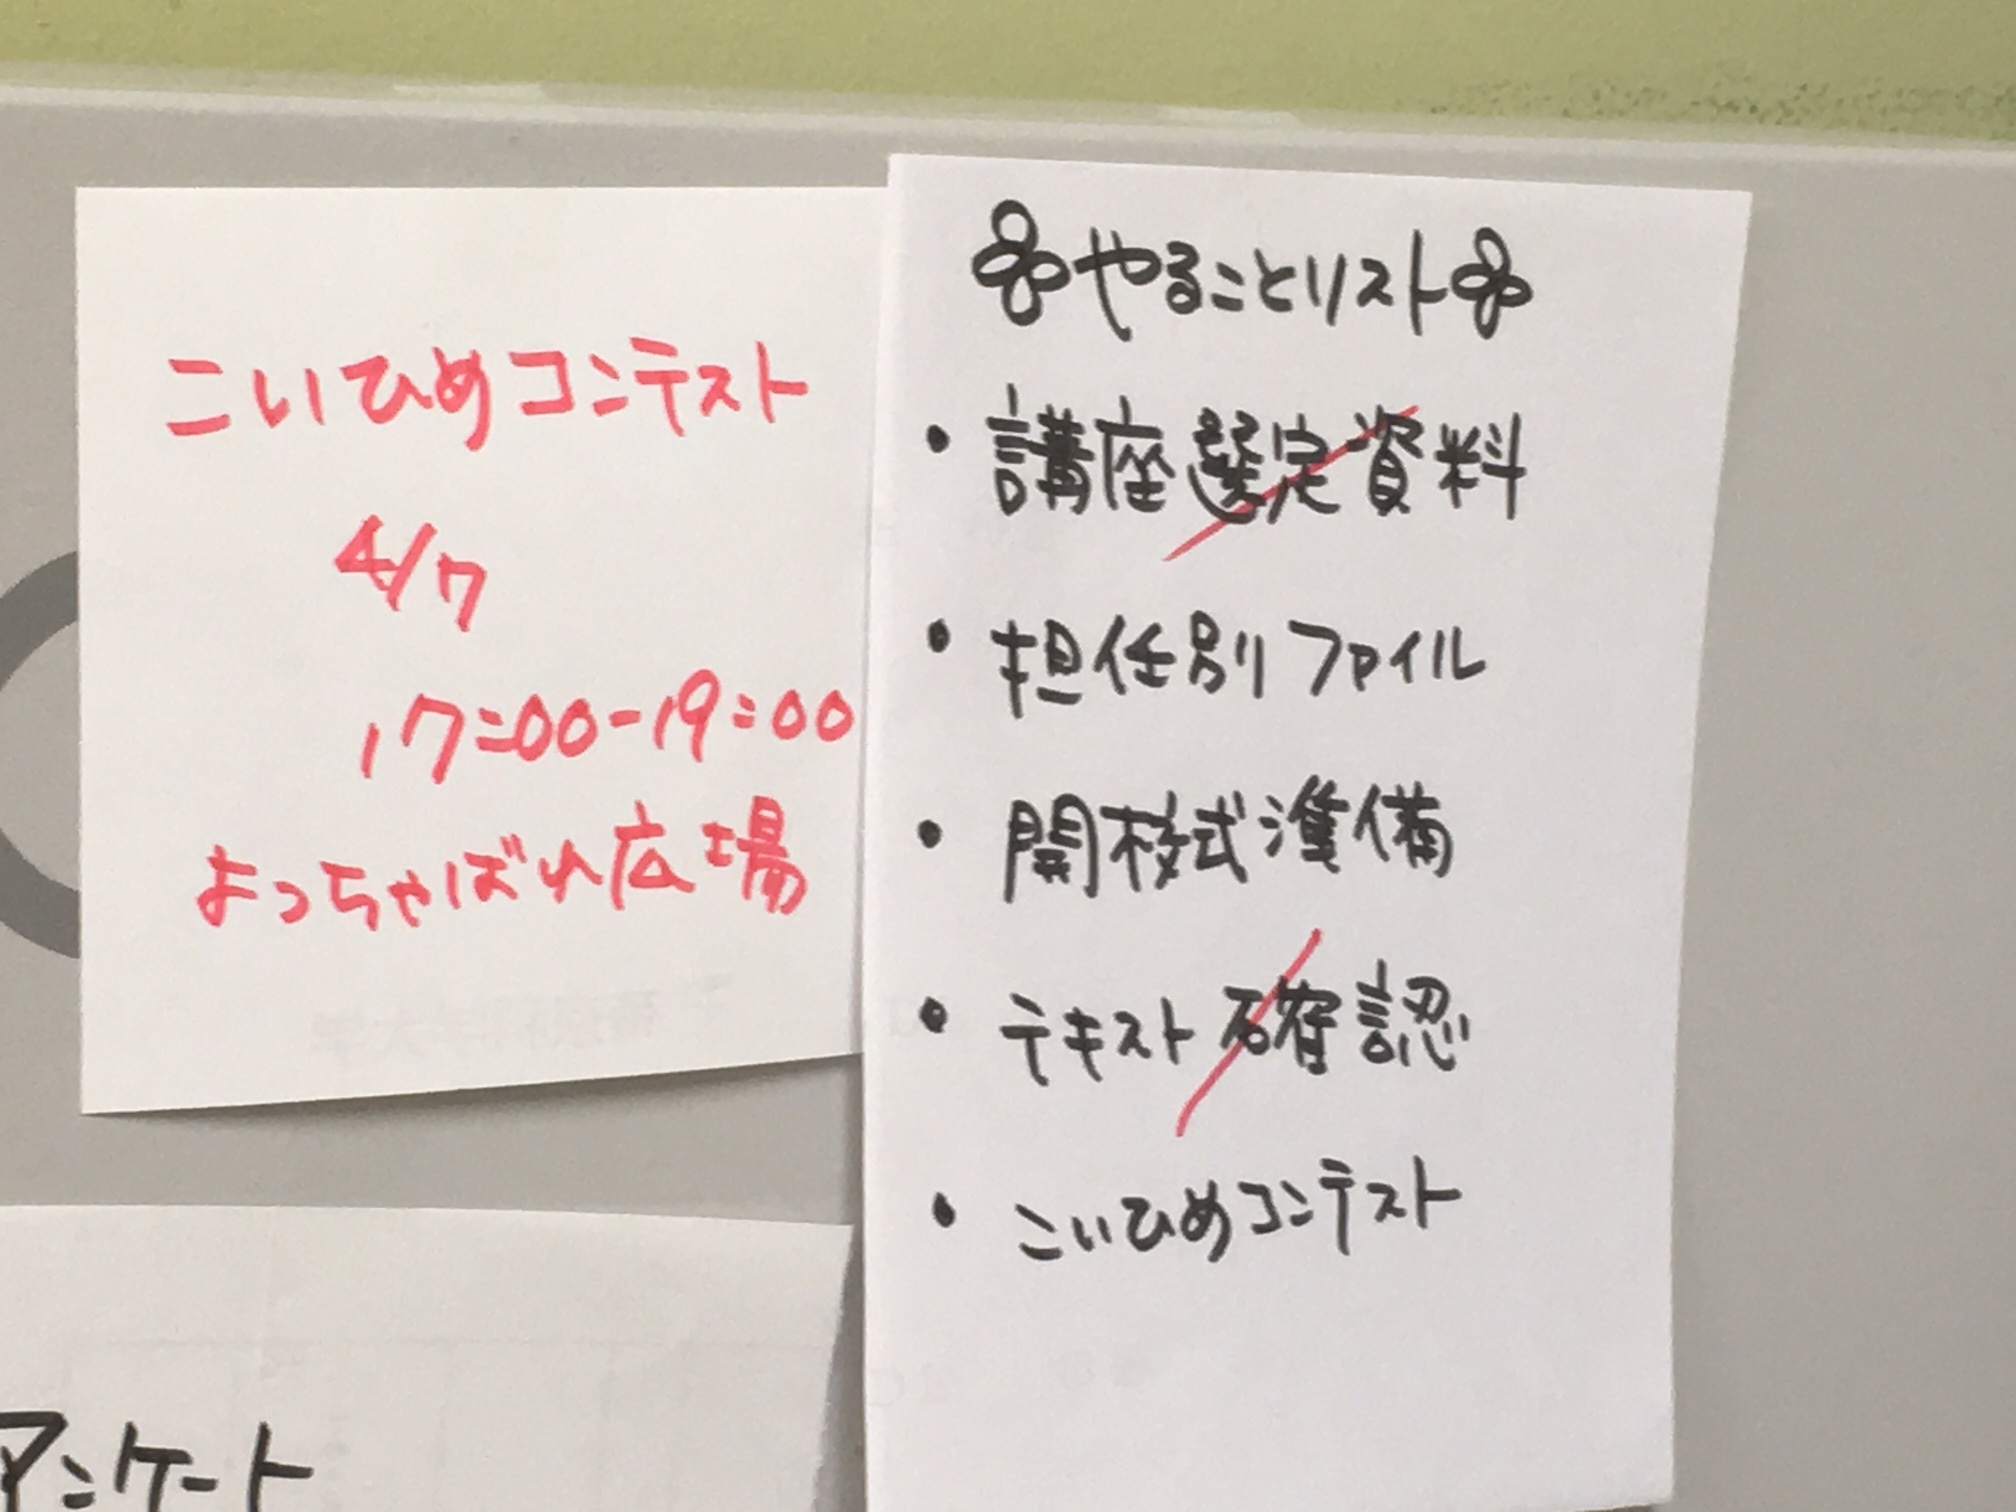 こいひめコンテスト
4/7
17:00-19:00
よっちゃばれ広場
やることリスト
・講座選定資料
・担任別ファイル
・開校式準備
・テキスト確認
・こいひめコンテスト
アンケート